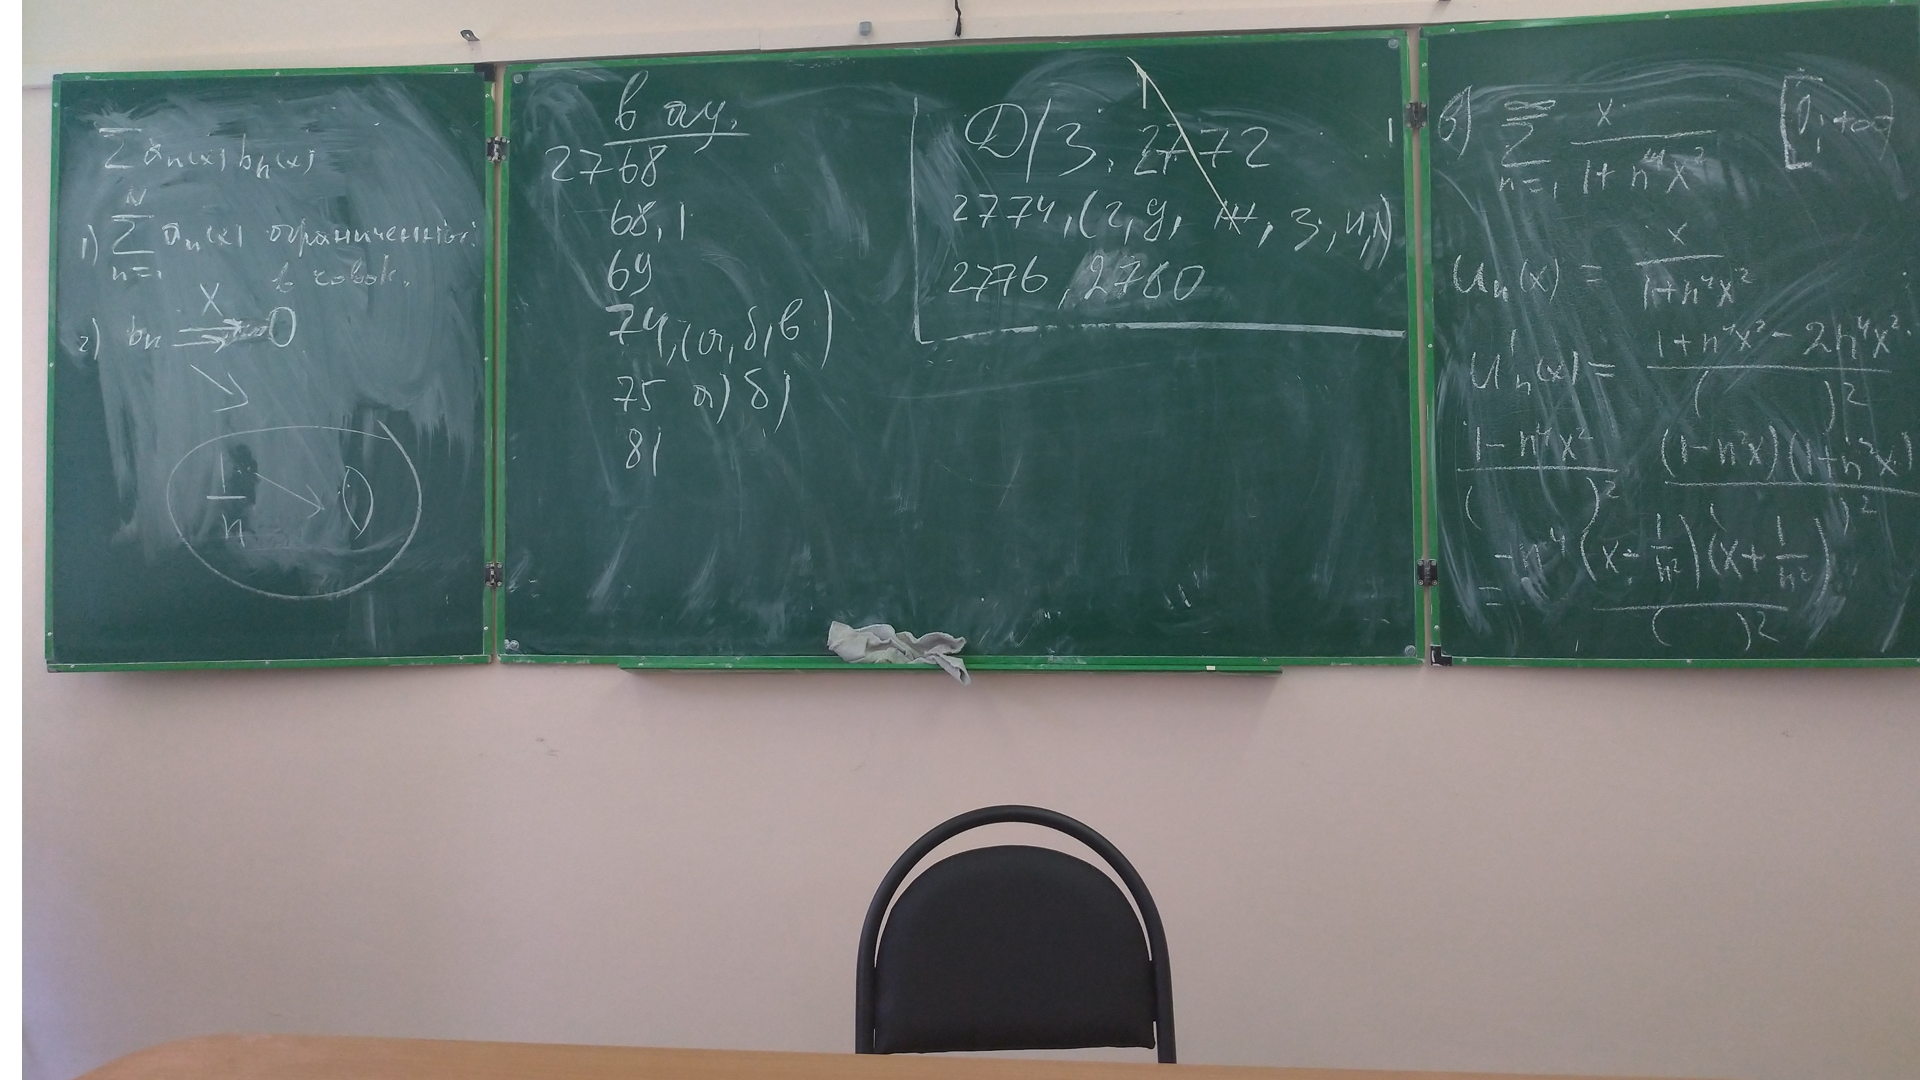 ∑ aₙ(x) bₙ(x)
N
1) ∑ aₙ(x) ограниченны
n=1
в совок.
X
2) bₙ ⇉ 0
↘
1/n ↘ 0
в ау.
2768
68,1
69
74,(а,б,в)
75 а) б)
81
Д/З. 2772
2774,(г,д, ж, з, и,)
2776, 2780
в) ∑ₙ₌₁^∞ x/(1+n⁴x²) [0,+∞)
uₙ(x) = x/(1+n⁴x²)
u'ₙ(x) = (1+n⁴x² - 2n⁴x²)/( )²
(1-n⁴x²)/( )² (1-n²x)(1+n²x)/( )²
= -n⁴(x-1/n²)(x+1/n²)/( )²